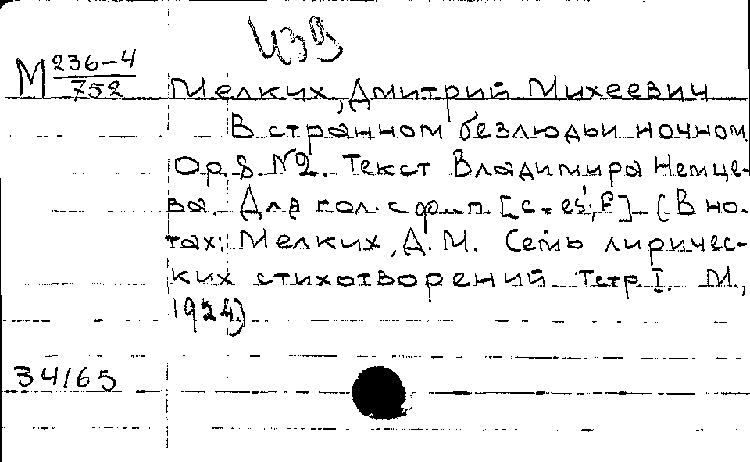 ИЗВ
М 236-4
752
Мелких, Дмитрий Михеевич
В странном безлюдьи ночном
Op. 8 №2. Текст Владимира Немце-
ва. Для гол. с ф.-п. [c - es', f] - (В но-
тах: Мелких, Д. М. Семь лиричес-
ких стихотворений Тетр. I. М.,
1924)
34165